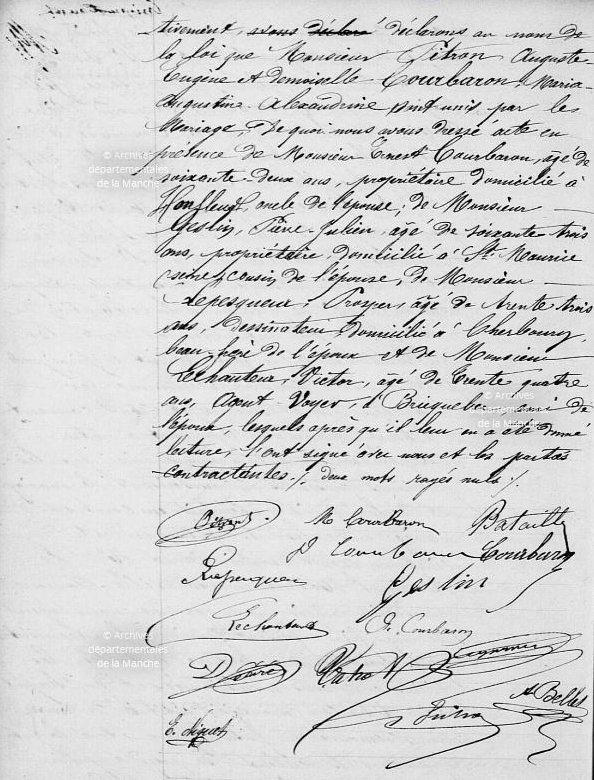 tivement, avons déclaré déclarons au nom de
la loi que Monsieur Pitron Auguste-
Eugène et Demoiselle Courbaron, Maria-
Augustine-Alexandrine sont unis par le
Mariage, De quoi nous avons dressé acte en
présence de Monsieur Ernest Courbaron, âgé de
soixante-deux ans, propriétaire domicilié à
Honfleur, oncle de l'épouse; de Monsieur
Geslin, Pierre-Julien, âgé de soixante trois
ans, propriétaire, domicilié à St. Maurice
cousin de l'épouse, de Monsieur
Lepesqueur, Prosper, âgé de trente trois
ans, dessinateur, domicilié à Cherbourg,
beau-frère de l'époux et de Monsieur
Lechanteur, Victor, âgé de trente quatre
ans, Agent Voyer, à Bricquebec ami de
l'époux, lesquels après qu'il leur en a été donné
lecture, l'ont signé avec nous et les parties
contractantes./. deux mots rayés nuls /.
Pitron M Courbaron Bataille
Courbaron Courbaron
Lepesqueur Geslin
Lechanteur E. Courbaron
A Bellet
© Archives
départementales
de la Manche
© Archives
départementales
de la Manche
© Archives
départementales
de la Manche